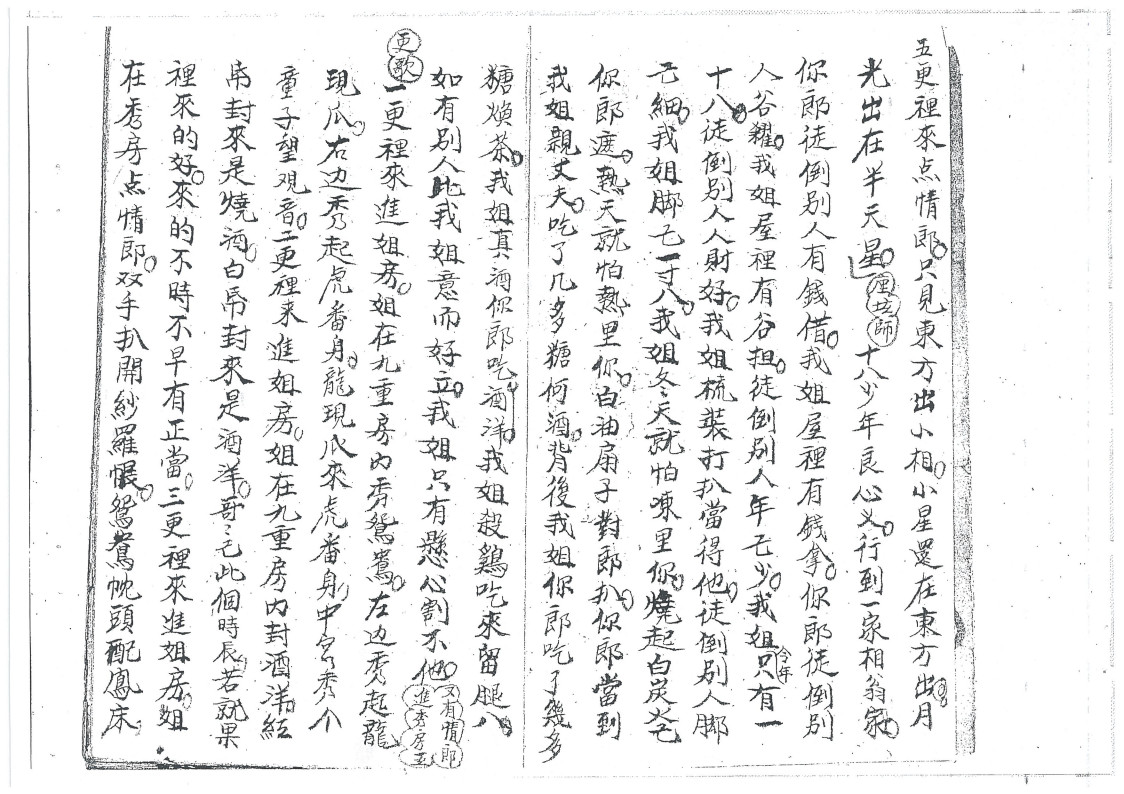 五更裡來点情郎只見東方出小相小星還在東方出月
光出在半天星 十八少年良心义行到一家相翁家
你郎徒倒別人有錢借我姐屋裡有錢拿你郎徒倒別
人谷糴我姐屋裡有谷担徒倒別人年己少我姐只有一
今年
十八徒倒別人人財好我姐梳裝打扒當得他徒倒別人脚
己細我姐脚己一寸八我姐冬天就怕凍里你燒起白炭火己
你郎遮熱天就怕熱里你白油扇子對郎扒你郎當到
我姐親丈夫吃了几多糖何酒背後我姐你郎吃了幾多
糖煥茶我姐真酒你郎吃酒洋我姐殺鷄吃來留腿八
如有別人此我姐意而好立我姐只有懸心割不他
又有情郎
進秀房五
更歌
一更裡來進姐房姐在九重房內秀鴛鴦左边秀起龍
現爪右边秀起虎番身龍現爪來虎番身中宮秀个
童子望观音二更裡来進姐房姐在九重房内封酒洋紅
帋封來是燒酒白帋封來是酒洋哥己此個時辰若就果
裡來的好來的不時不早有正當三更裡來進姐房姐
在秀房点情郎双手扒開紗羅帳鴛鴦枕頭配鳳床